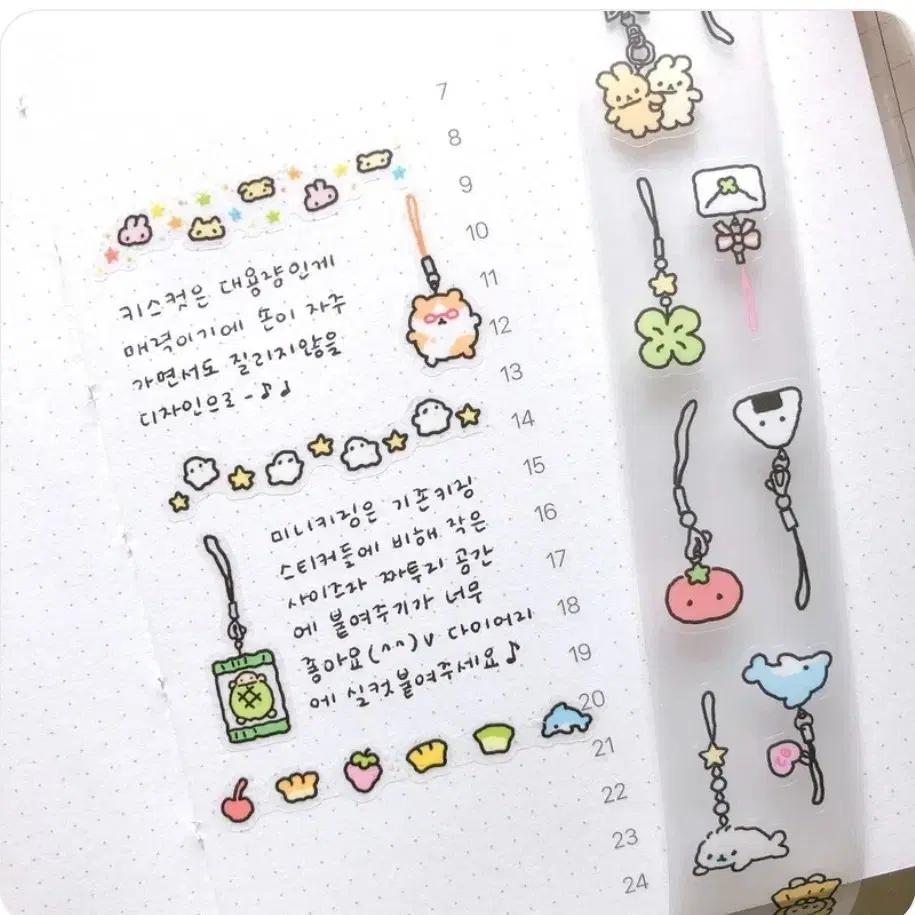 7
8
9
10
11
12
13
14
15
16
17
18
19
20
21
22
23
24
키스컷은 대용량인게
매력이기에 손이 자주
가면서도 질리지않을
디자인으로-♪♩
미니키링은 기존키링
스티커들에 비해 작은
사이즈라 짜투리 공간
에 붙여주기가 너무
좋아요(^^)v 다이어리
에 실컷붙여주세요♪